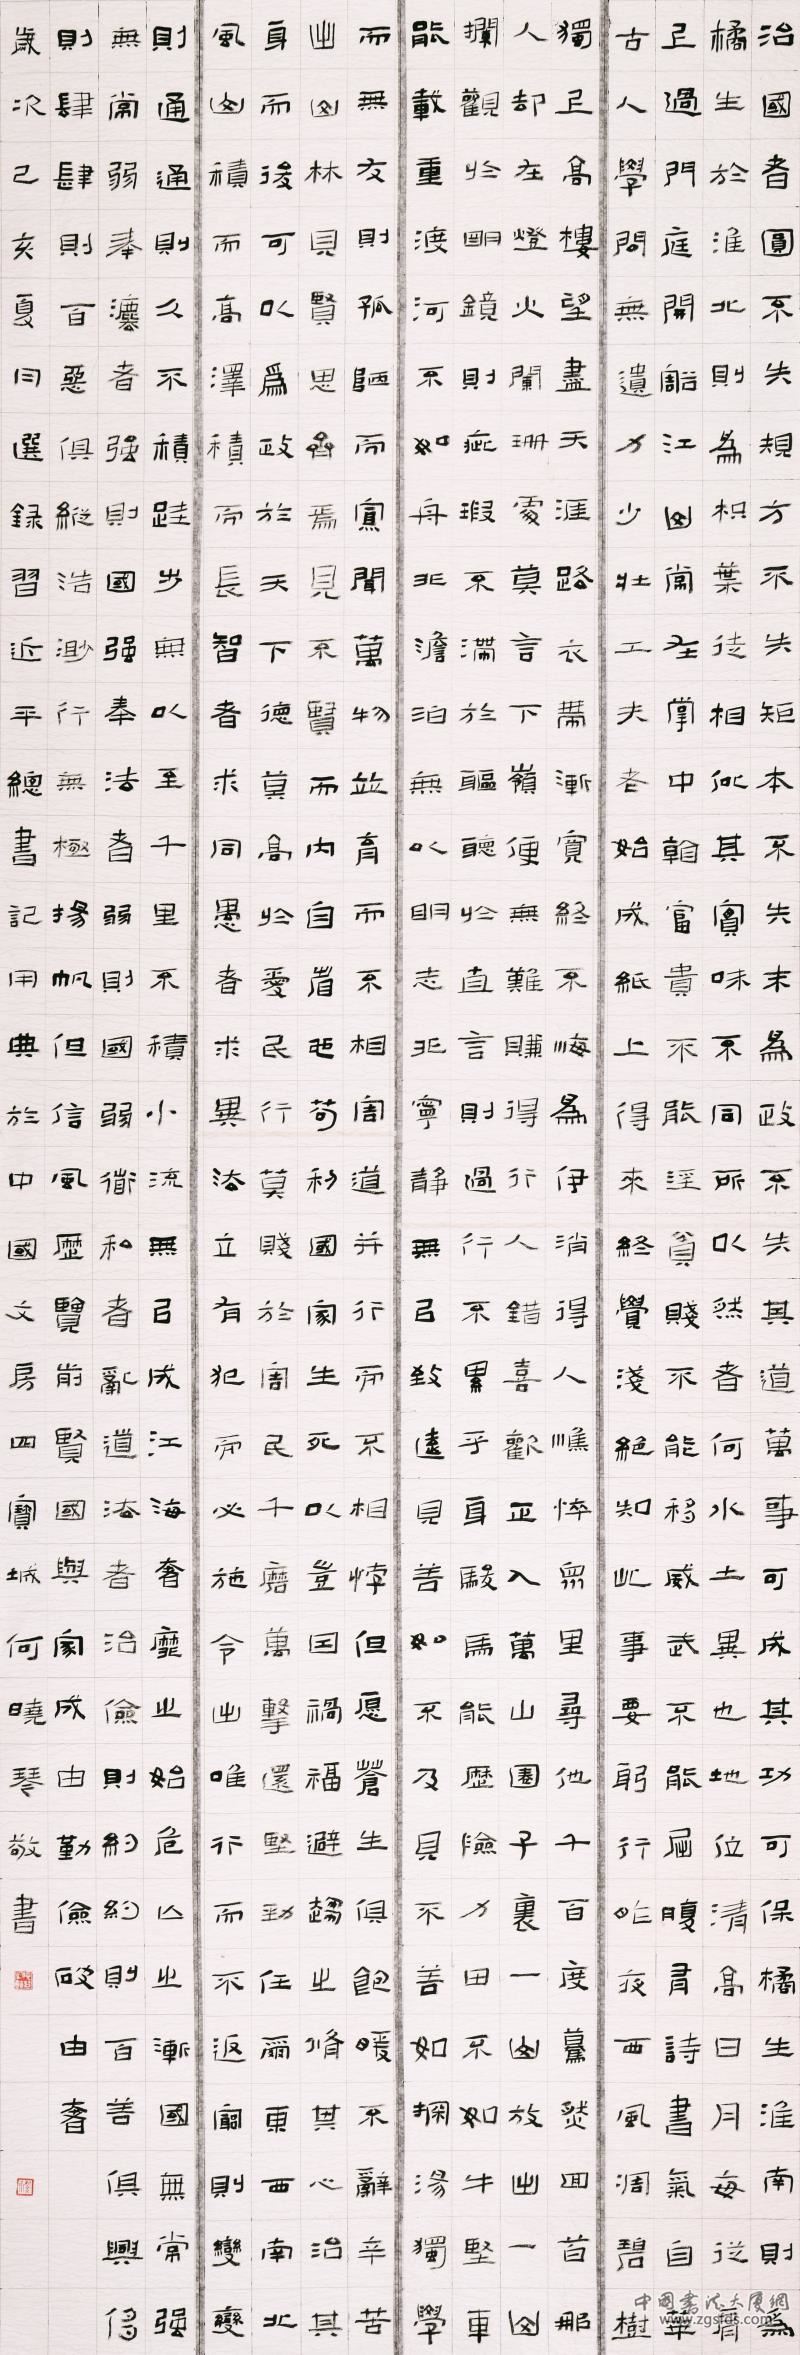 治國者圓不失規方不失矩本不失末為政不失其道萬事可成其功可保橘生淮南則為
橘生於淮北則為枳葉徒相似其實味不同所以然者何水土異也地位清高日月每從肩
上過門庭開豁江山常在掌中看富貴不能淫貧賤不能移威武不能屈腹有詩書氣自華
古人學問無遺力少壯工夫老始成紙上得來終覺淺絕知此事要躬行昨夜西風凋碧樹
獨上高樓望盡天涯路衣帶漸寬終不悔為伊消得人憔悴眾里尋他千百度驀然回首那
人却在燈火闌珊處莫言下嶺便無難賺得行人錯喜歡正入萬山圈子裏一山放出一山
攔觀於明鏡則疵瑕不滯於軀聽於直言則過行不累乎身駿馬能歷險力田不如牛堅車
能載重渡河不如舟非澹泊無以明志非寧靜無以致遠見善如不及見不善如探湯獨學
而無友則孤陋而寡聞萬物並育而不相害道并行而不相悖但愿蒼生俱飽暖不辭辛苦
出山林見賢思齊焉見不賢而內自省也苟利國家生死以豈因禍福避趨之脩其心治其
身而後可以為政於天下德莫高於愛民行莫賤於害民千磨萬擊還堅勁任爾東西南北
風山積而高澤積而長智者求同愚者求異法立有犯而必施令出唯行而不返窮則變變
則通通則久不積跬步無以至千里不積小流無以成江海奢靡之始危亡之漸國無常強
無常弱奉灋者強則國強奉法者弱則國弱道私者亂道法者治儉則約約則百善俱興侈
則肆肆則百惡俱縱浩渺行無極揚帆但信風歷覽前賢國與家成由勤儉破由奢
歲次己亥夏月選錄習近平總書記用典於中國文房四寶城何曉琴敬書
中国书法大厦網
www.zgsfds.com